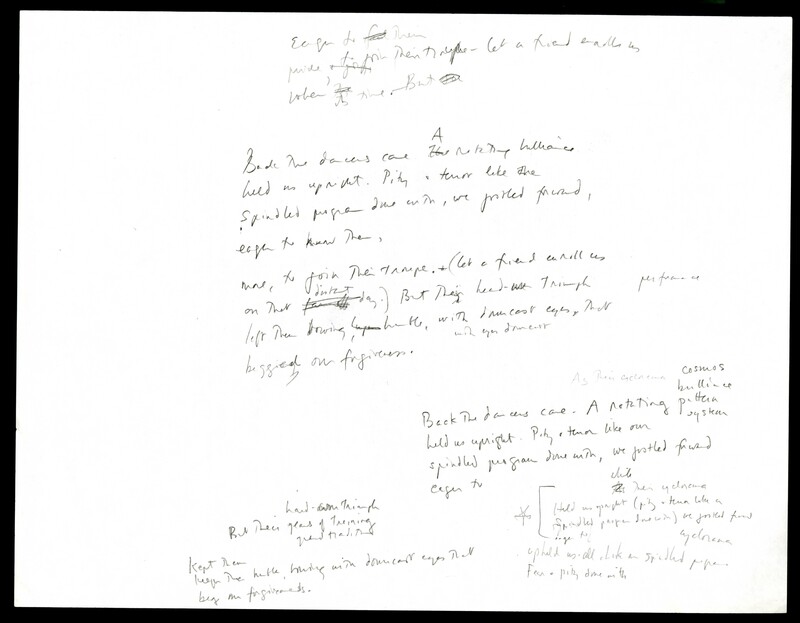 Eager to them
to join their troupe - let a friend enroll us
when time. But
Back the dancers came A The rotating brilliance
held us upright. Pity + terror like the
Spindled program done with, we jostled forward,
eager to know them,
more, to join their troupe. + (Let a friend enroll us
on that distant day.) But their hard-won triumph performance
left them bowing, humble, with downcast eyes, that
with eyes downcast
begged our forgiveness.
As their cyclorama cosmos
brilliance
Back the dancers came. A rotating pattern
system
held us upright. Pity + terror like our
spindled program done with, we jostled forward
eager to
while
their cyclorama
Held us upright (pity + terror like a
Spindled program done with) we jostled forward
eager to
cyclorama
upheld us all. Like a spindled program
Fear + pity done with
hard-won triumph
But their years of training
grand tradition
Kept them
keeps them humble, bowing with downcast eyes that
beg our forgiveness.